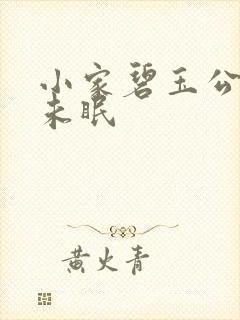 小家碧玉公
未眠
黄火青